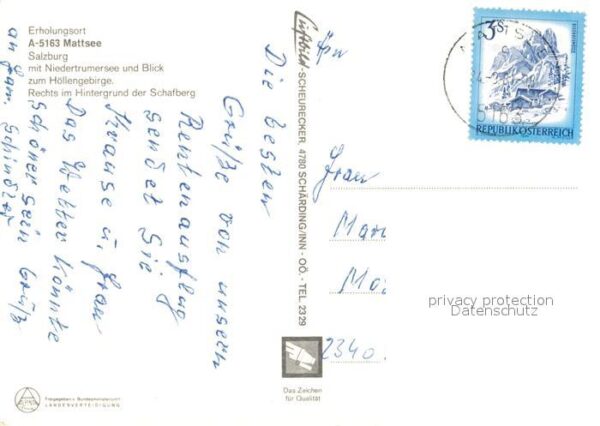 Erholungsort
A-5163 Mattsee
Salzburg
mit Niedertrumersee und Blick
zum Höllengebirge.
Rechts im Hintergrund der Schafberg
Die besten
Grüße von unsern
Rentenausflug
sendet Sie
Krause u. Frau
Das Wetter könnte
schöner sein Grüß
an Fam. Schindler
Luftbild-SCHEURECKER, 4780 SCHÄRDING/INN - OÖ. - TEL. 2329
3S
REPUBLIK ÖSTERREICH
5163
Frau
Mari
Ma
2340
privacy protection
Datenschutz
Das Zeichen
für Qualität
Freigegeben v. Bundesministerium f.
LANDESVERTEIDIGUNG